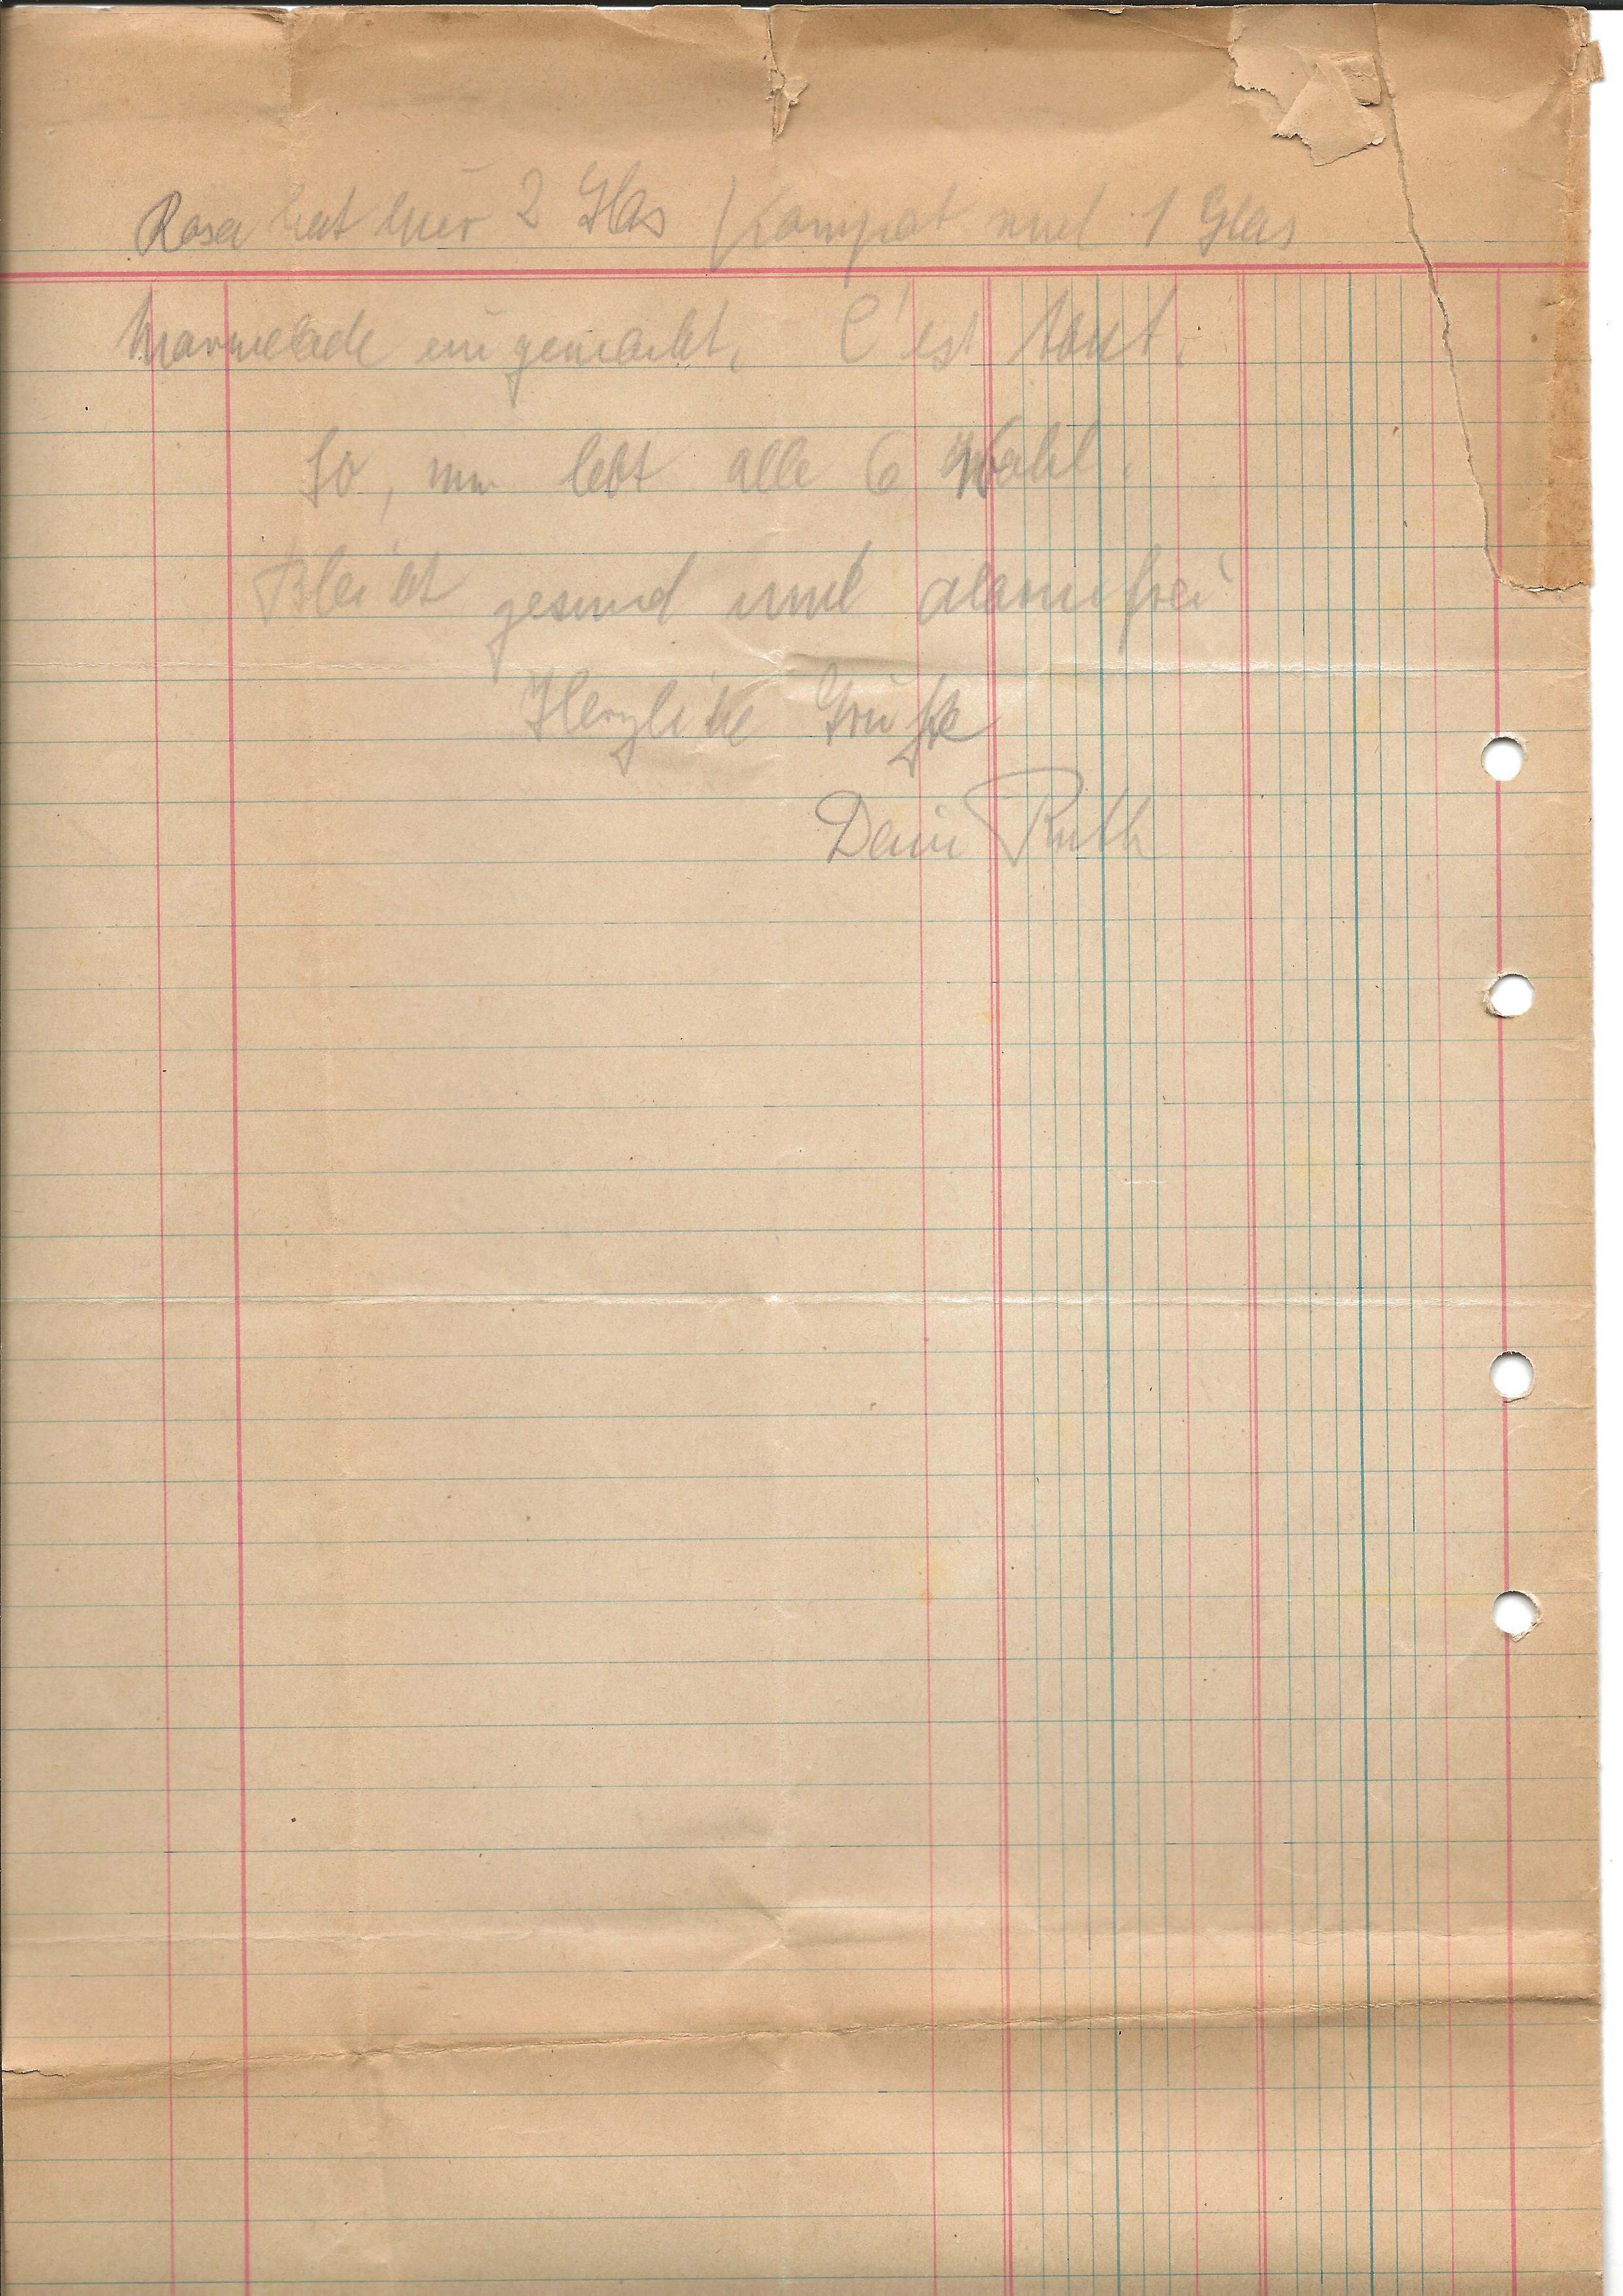 Rosa hat hier 2 Glas Kompot und 1 Glas
Marmelade eingemacht. C'est tout.
So, nun lebt alle 6 Wohl.
Bleibt gesund und alarmfrei
Herzliche Grüße
Deine Ruth